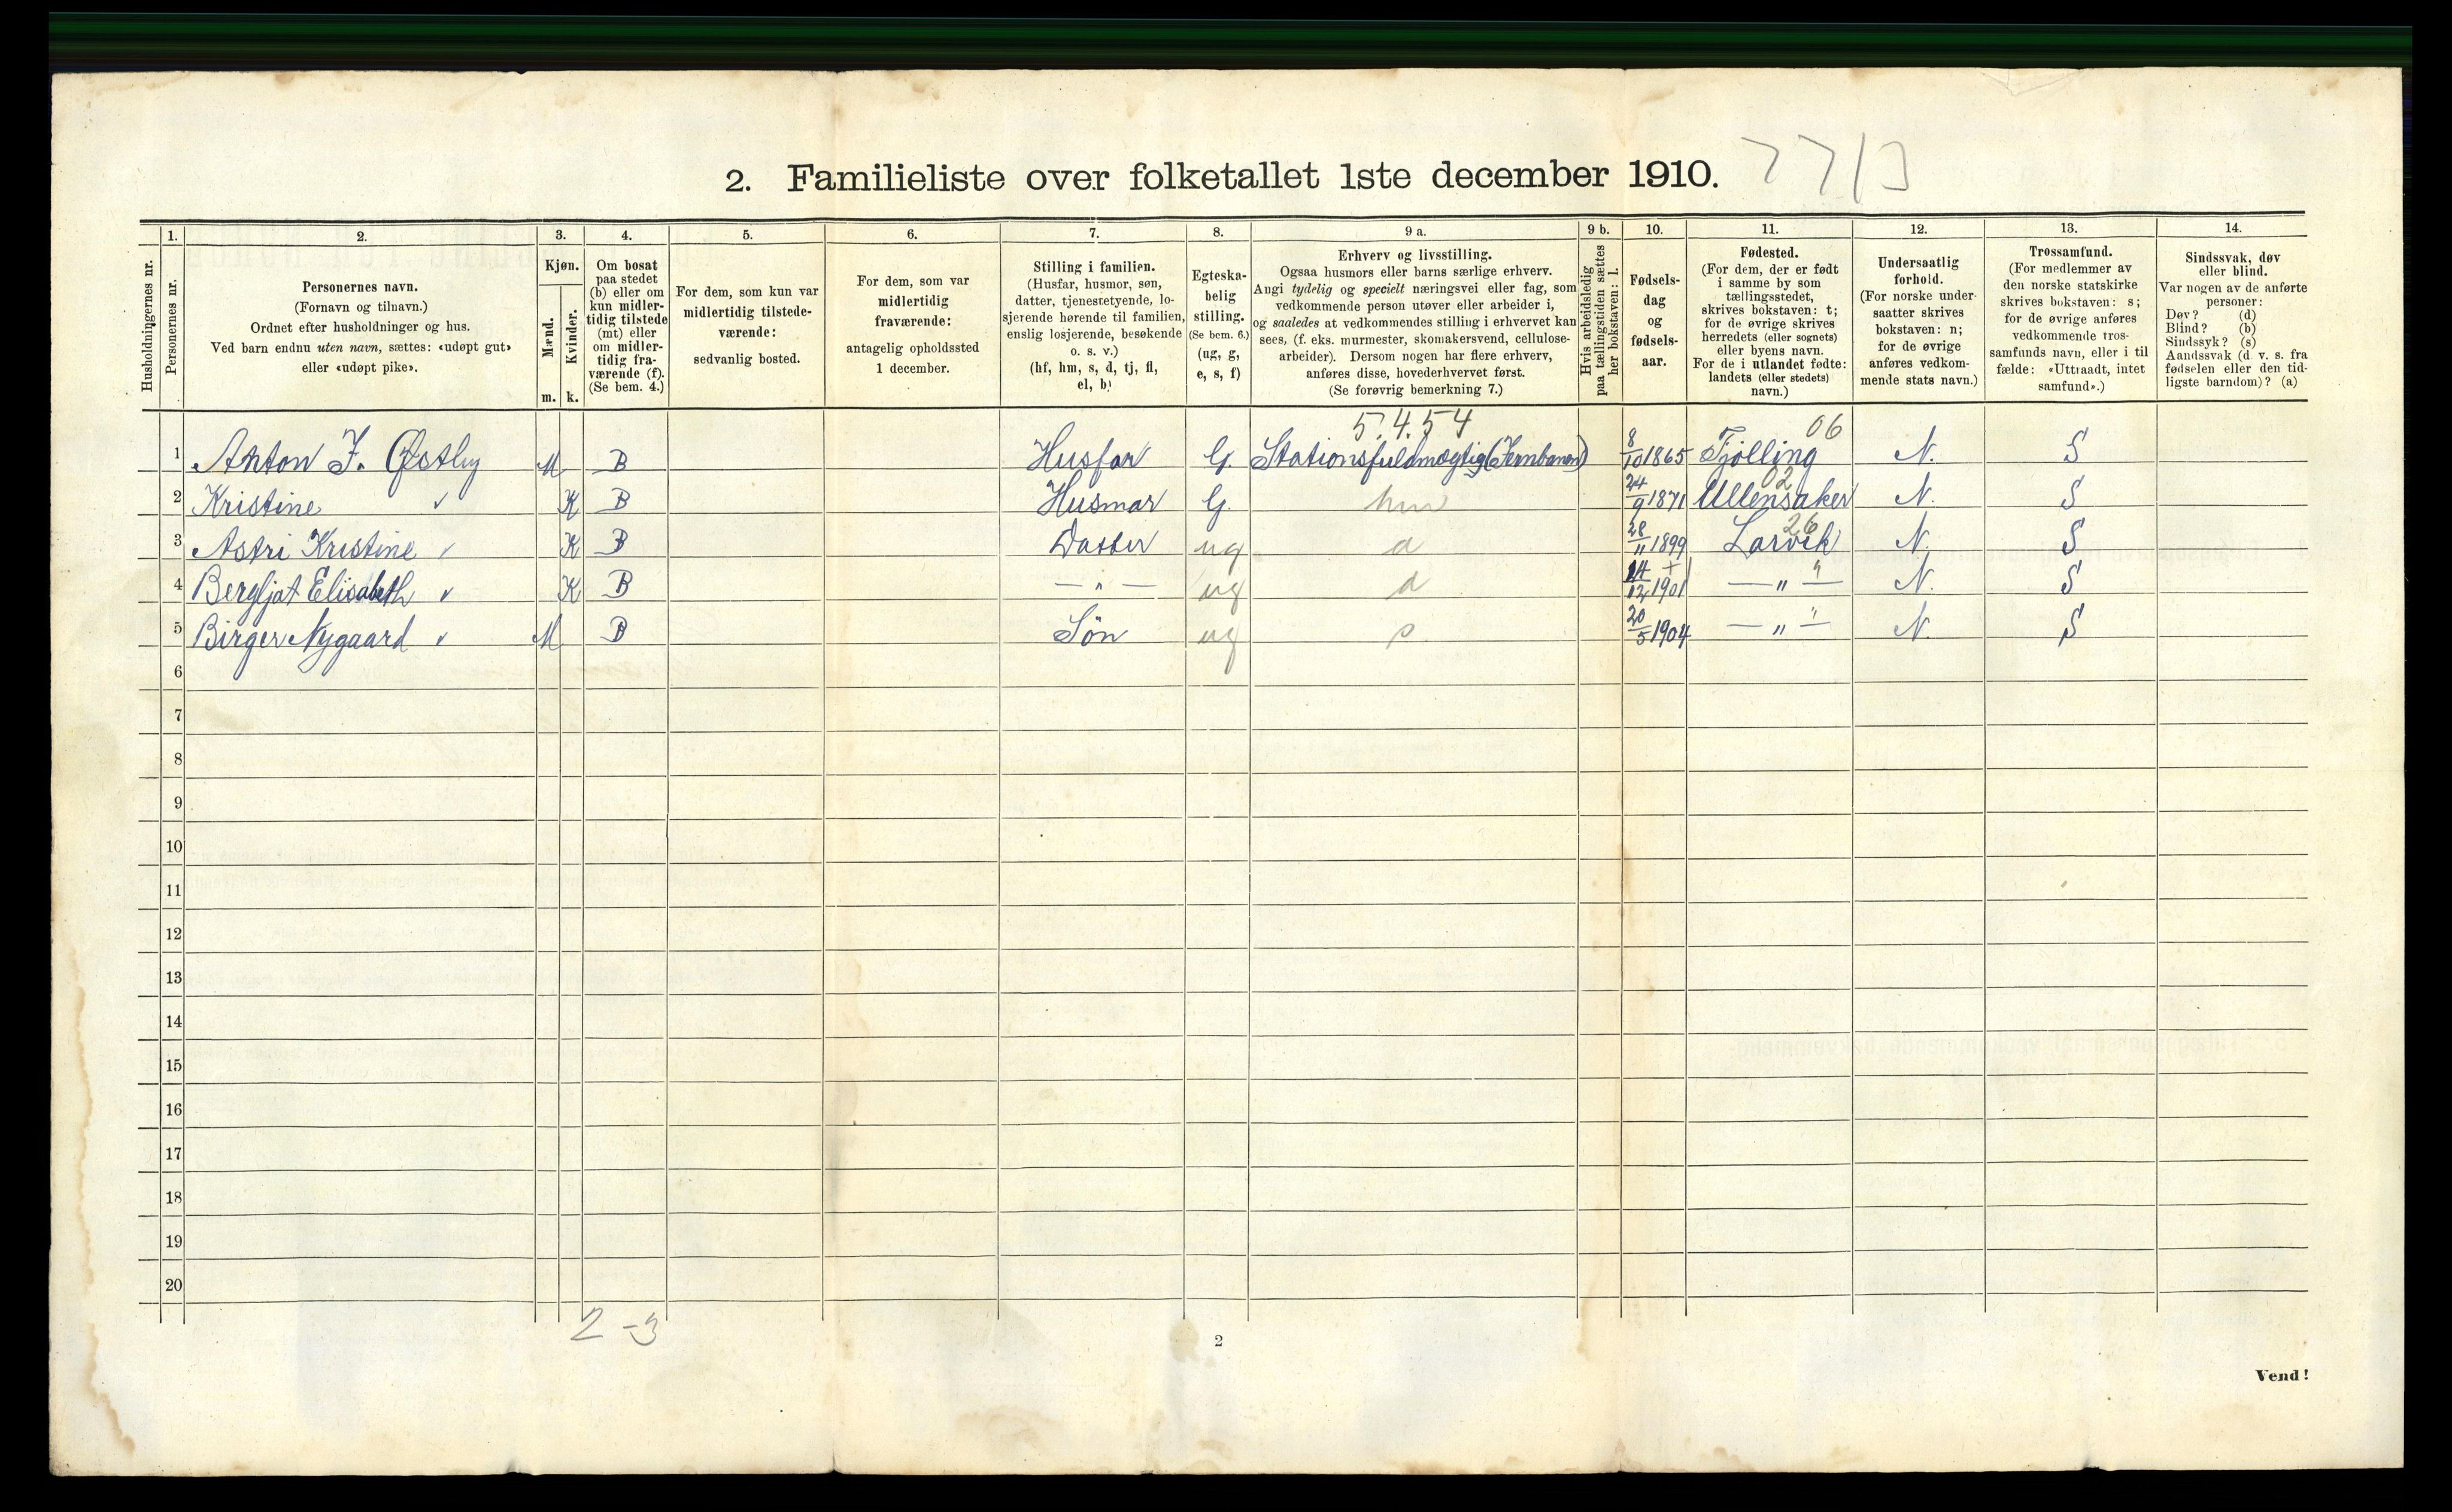 2. Familieliste over folketallet 1ste december 1910.
Husholdningernes nr.
1. Personernes nr.
2. Personernes navn.
(Fornavn og tilnavn.)
Ordnet efter husholdninger og hus.
Ved barn endnu uten navn, sættes: «udøpt gut»
eller «udøpt pike».
3. Kjøn.
Mænd. m.
Kvinder. k.
4. Om bosat
paa stedet
(b) eller om
kun midler-
tidig tilstede
(mt) eller
om midler-
tidig fra-
værende (f).
(Se bem. 4.)
5. For dem, som kun var
midlertidig tilstede-
værende:
sedvanlig bosted.
6. For dem, som var
midlertidig
fraværende:
antagelig opholdssted
1 december.
7. Stilling i familien.
(Husfar, husmor, søn,
datter, tjenestetyende, lo-
sjerende hørende til familien,
enslig losjerende, besøkende
o. s. v.)
(hf, hm, s, d, tj, fl,
el, b)
8. Egteska-
belig
stilling.
(Se bem. 6.)
(ug, g,
e, s, f)
9 a. Erhverv og livsstilling.
Ogsaa husmors eller barns særlige erhverv.
Angi tydelig og specielt næringsvei eller fag, som
vedkommende person utøver eller arbeider i,
og saaledes at vedkommendes stilling i erhvervet kan
sees, (f. eks. murmester, skomakersvend, cellulose-
arbeider). Dersom nogen har flere erhverv,
anføres disse, hovederhvervet først.
(Se forøvrig bemerkning 7.)
9 b. Hvis arbeidsledig
paa tællingstiden sættes
her bokstaven: l.
10. Fødsels-
dag
og
fødsels-
aar.
11. Fødested.
(For dem, der er født
i samme by som
tællingsstedet,
skrives bokstaven: t;
for de øvrige skrives
herredets (eller sognets)
eller byens navn.
For de i utlandet fødte:
landets (eller stedets)
navn.)
12. Undersaatlig
forhold.
(For norske under-
saatter skrives
bokstaven: n;
for de øvrige
anføres vedkom-
mende stats navn.)
13. Trossamfund.
(For medlemmer av
den norske statskirke
skrives bokstaven: s;
for de øvrige anføres
vedkommende tros-
samfunds navn, eller i til
fælde: «Uttraadt, intet
samfund».)
14. Sindssvak, døv
eller blind.
Var nogen av de anførte
personer:
Døv? (d)
Blind? (b)
Sindssyk? (s)
Aandssvak (d. v. s. fra
fødselen eller den tid-
ligste barndom)? (a)
5.4.54 06
1 Anton F. Østby M B Husfar G. Stationsfuldmægtig (Jernbanen) 8/10 1865 Tjölling N. S
02
2 Kristine " K B Husmor G. hm 24/9 1871 Ullensaker N. S
26
3 Astri Kristine " K B Datter ug d 28/11 1899 Larvik N. S
4 Bergljot Elisabeth " K B — " — ug d 14/12 1901 — " — N. S
5 Birger Nygaard " M B Sön ug s 20/5 1904 — " — N. S
6
7
8
9
10
11
12
13
14
15
16
17
18
19
20
2 - 3
2
Vend!